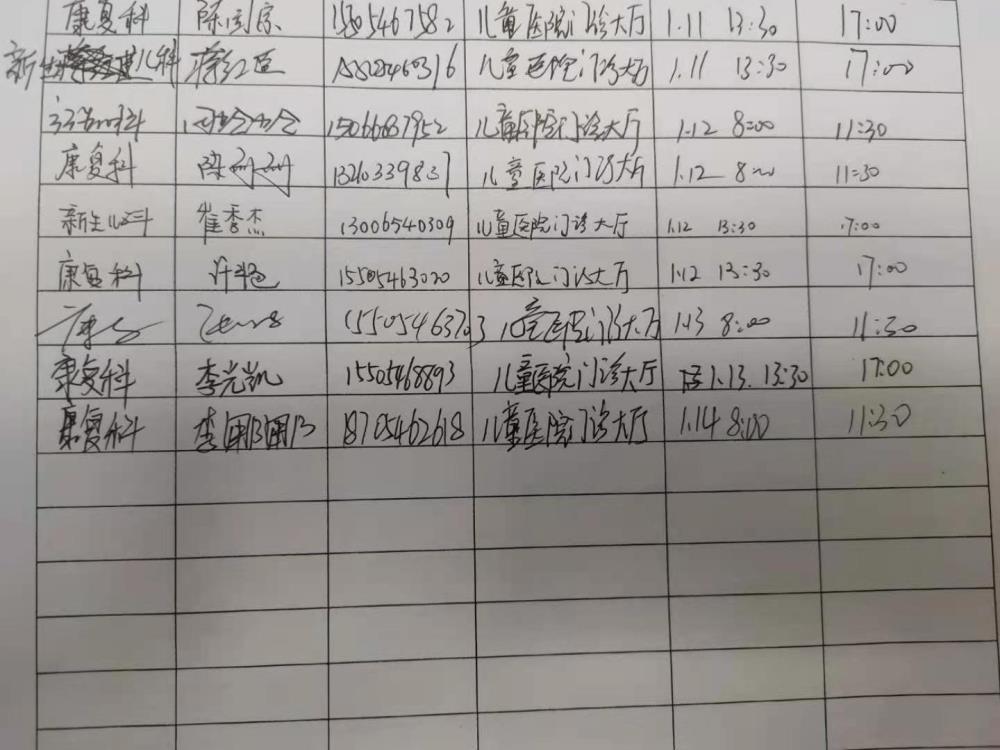 康复科 陈 15505467582 儿童医院门诊大厅 1.11 13:30 17:00
新生儿科 蒋红臣 儿童医院门诊大厅 1.11 13:30 17:00
15066687952 儿童医院门诊大厅 1.12 8:00 11:30
康复科 陈册册 13210339837 儿童医院门诊大厅 1.12 8:00 11:30
新生儿科 崔秀杰 13006540309 儿童医院门诊大厅 1.12 13:30 17:00
康复科 许 15505463020 儿童医院门诊大厅 1.12 13:30 17:00
康复 儿童医院门诊大厅 1.13 8:00 11:30
康复科 李光凯 15505468893 儿童医院门诊大厅 1.13. 13:30 17:00
康复科 李 18705462618 儿童医院门诊大厅 1.14 8:00 11:30